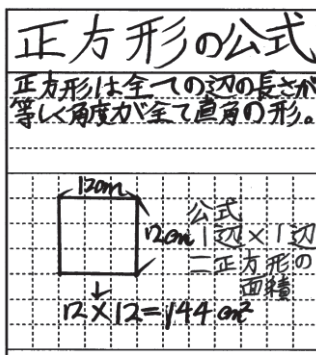 正方形の公式
正方形は全ての辺の長さが
等しく角度が全て直角の形。
12cm
12cm
公式
1辺×1辺
=正方形の
面積
12×12=144cm²